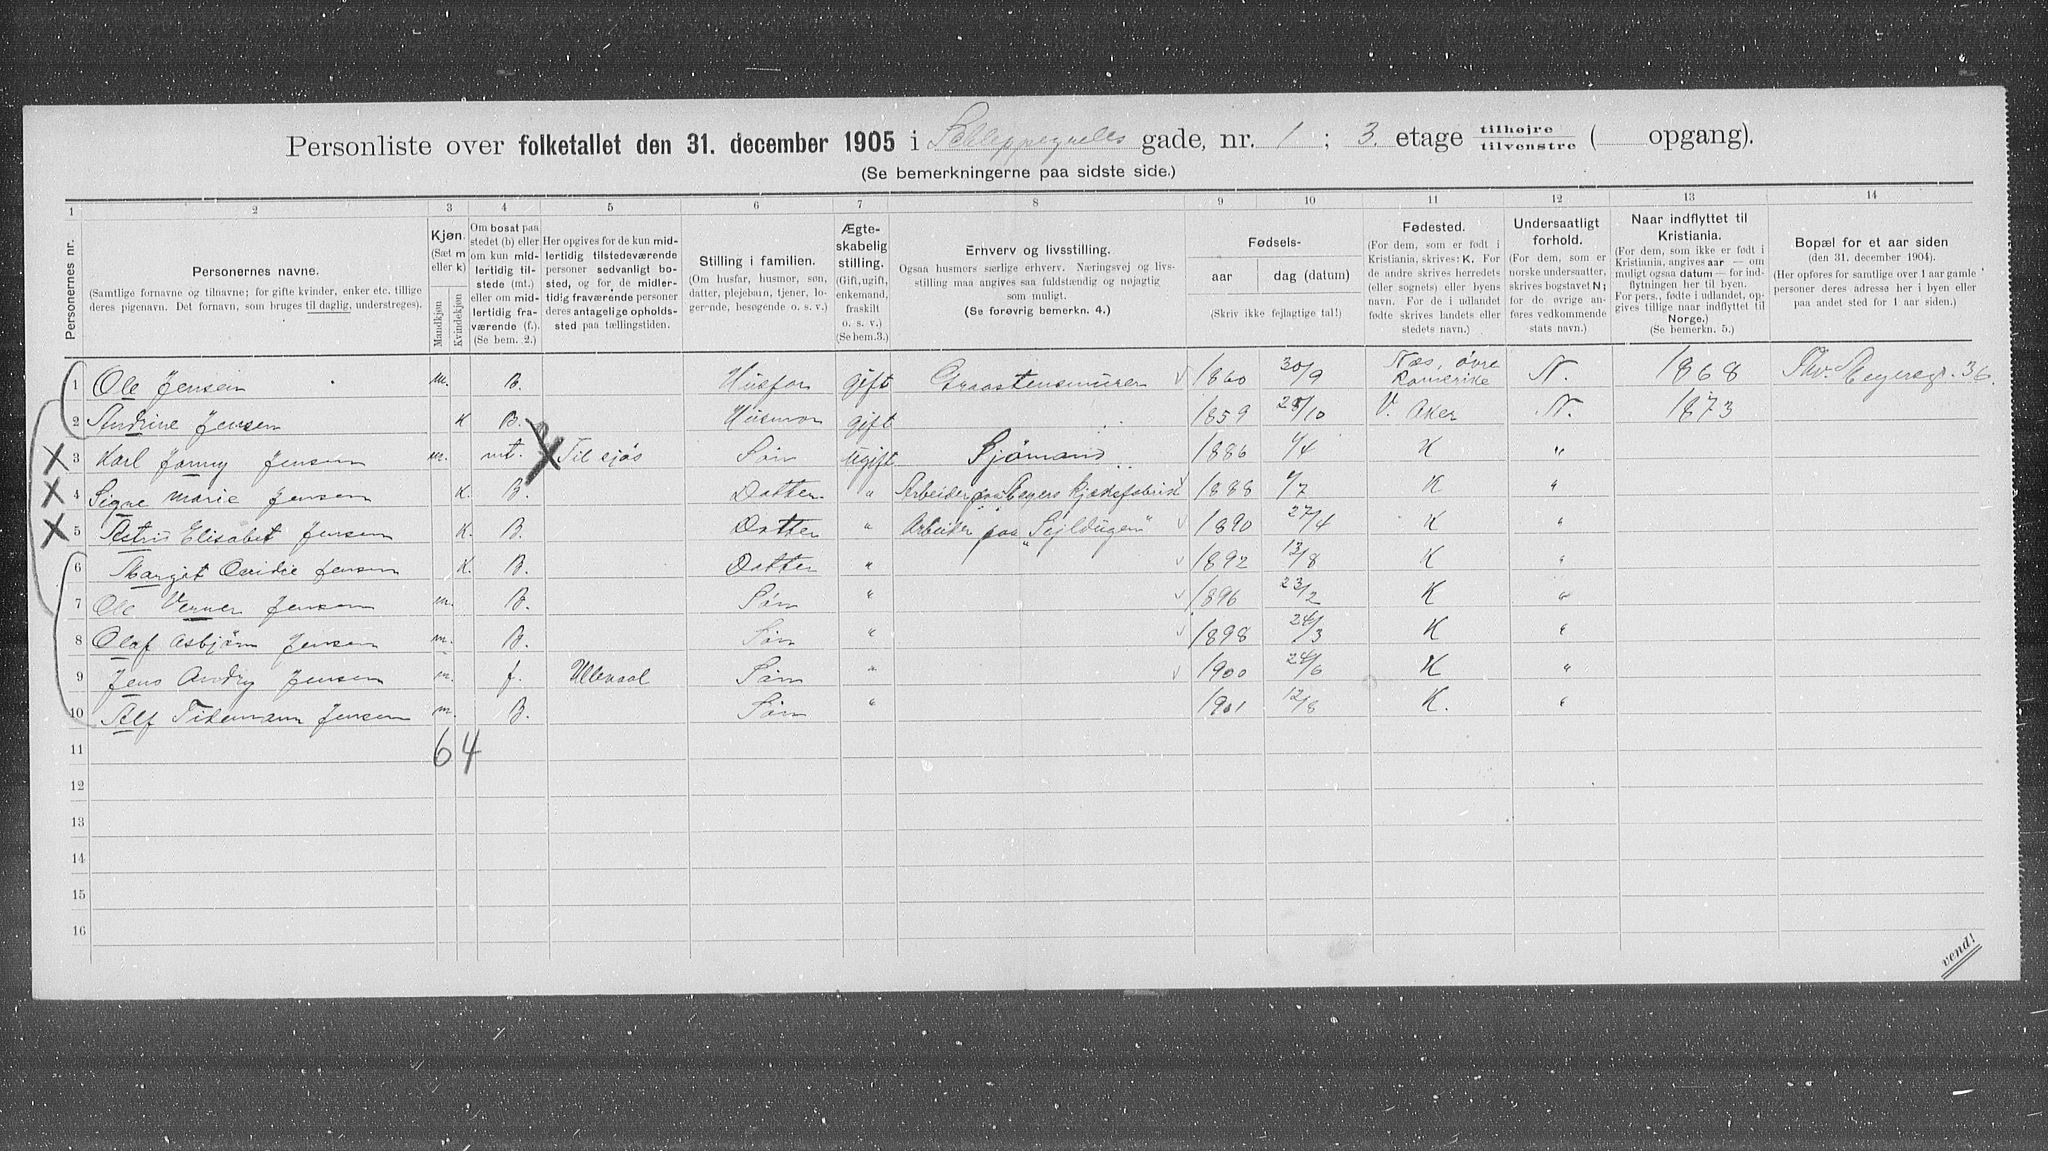 Personliste over folketallet den 31. december 1905 i Schleppegrells gade, nr. 1 ; 3. etage tilhøjre / tilvenstre ( opgang).
(Se bemerkningerne paa sidste side.)
1 2 3 4 5 6 7 8 9 10 11 12 13 14
Personernes nr.
Personernes navne.
(Samtlige fornavne og tilnavne; for gifte kvinder, enker etc. tillige deres pigenavn. Det fornavn, som bruges til daglig, understreges).
Kjøn.
(Sæt m eller k)
Mandkjøn
Kvindekjøn
Om bosat paa stedet (b) eller om kun midlertidig tilstede (mt.) eller om midlertidig fraværende (f.).
(Se bem. 2.)
Her opgives for de kun midlertidig tilstedeværende personer sedvanligt bosted, og for de midlertidig fraværende personer deres antagelige opholdssted paa tællingstiden.
Stilling i familien.
(Om husfar, husmor, søn, datter, plejebarn, tjener, logerende, besøgende o. s. v.)
Ægteskabelig stilling.
(Gift, ugift, enkemand, fraskilt o. s. v.)
(Se bem. 3.)
Erhverv og livsstilling.
Ogsaa husmors særlige erhverv. Næringsvej og livsstilling maa angives saa fuldstændig og nøjagtig som muligt.
(Se forøvrig bemerkn. 4.)
Fødsels-
aar
dag (datum)
(Skriv ikke fejlagtige tal!)
Fødested.
(For dem, som er født i Kristiania, skrives: K. For de andre skrives herredets (eller sognets) eller byens navn. For de i udlandet fødte skrives landets eller stedets navn.)
Undersaatligt forhold.
(For dem, som er norske undersaatter, skrives bogstavet N; for de øvrige anføres vedkommende stats navn.)
Naar indflyttet til Kristiania.
(For dem, som ikke er født i Kristiania, angives aar — om muligt ogsaa datum — for indflytningen her til byen. For pers., fødte i udlandet, opgives tillige naar indflyttet til Norge.)
(Se bemerkn. 5.)
Bopæl for et aar siden
(den 31. december 1904).
(Her opføres for samtlige over 1 aar gamle personer deres adresse her i byen eller paa andet sted for 1 aar siden.)
1 Ole Jensen m. B. Husfar gift Graastensmurer 1860 30/9 Næs, øvre Romerike N. 1868 Thv. Meyersgt. 36.
2 Andrine Jensen K B. Husmor gift 1859 28/10 V. Aker N. 1873
3 Karl Jonny Jensen m. mt. Til sjøs Søn Ugift Sjømand 1886 1/4 K "
4 Signe Marie Jensen K. B. Datter " Arbeider paa Meyers Kjæksfabrik 1888 6/7 K "
5 Astrid Elisabet Jensen K. B. Datter " Arbeider paa "Seildugen" 1890 27/4 K "
6 Margit Ovidie Jensen K. B. Datter " 1892 13/8 K "
7 Ole Verner Jensen m. B. Søn " 1896 23/2 K "
8 Olaf Asbjørn Jensen m. B. Søn " 1898 24/3 K "
9 Jens Andry Jensen m. f. Ullevaal Søn " 1900 24/6 K "
10 Alf Tidemann Jensen m. B. Søn " 1901 12/8 K. "
11 6 4
12
13
14
15
16
vend!